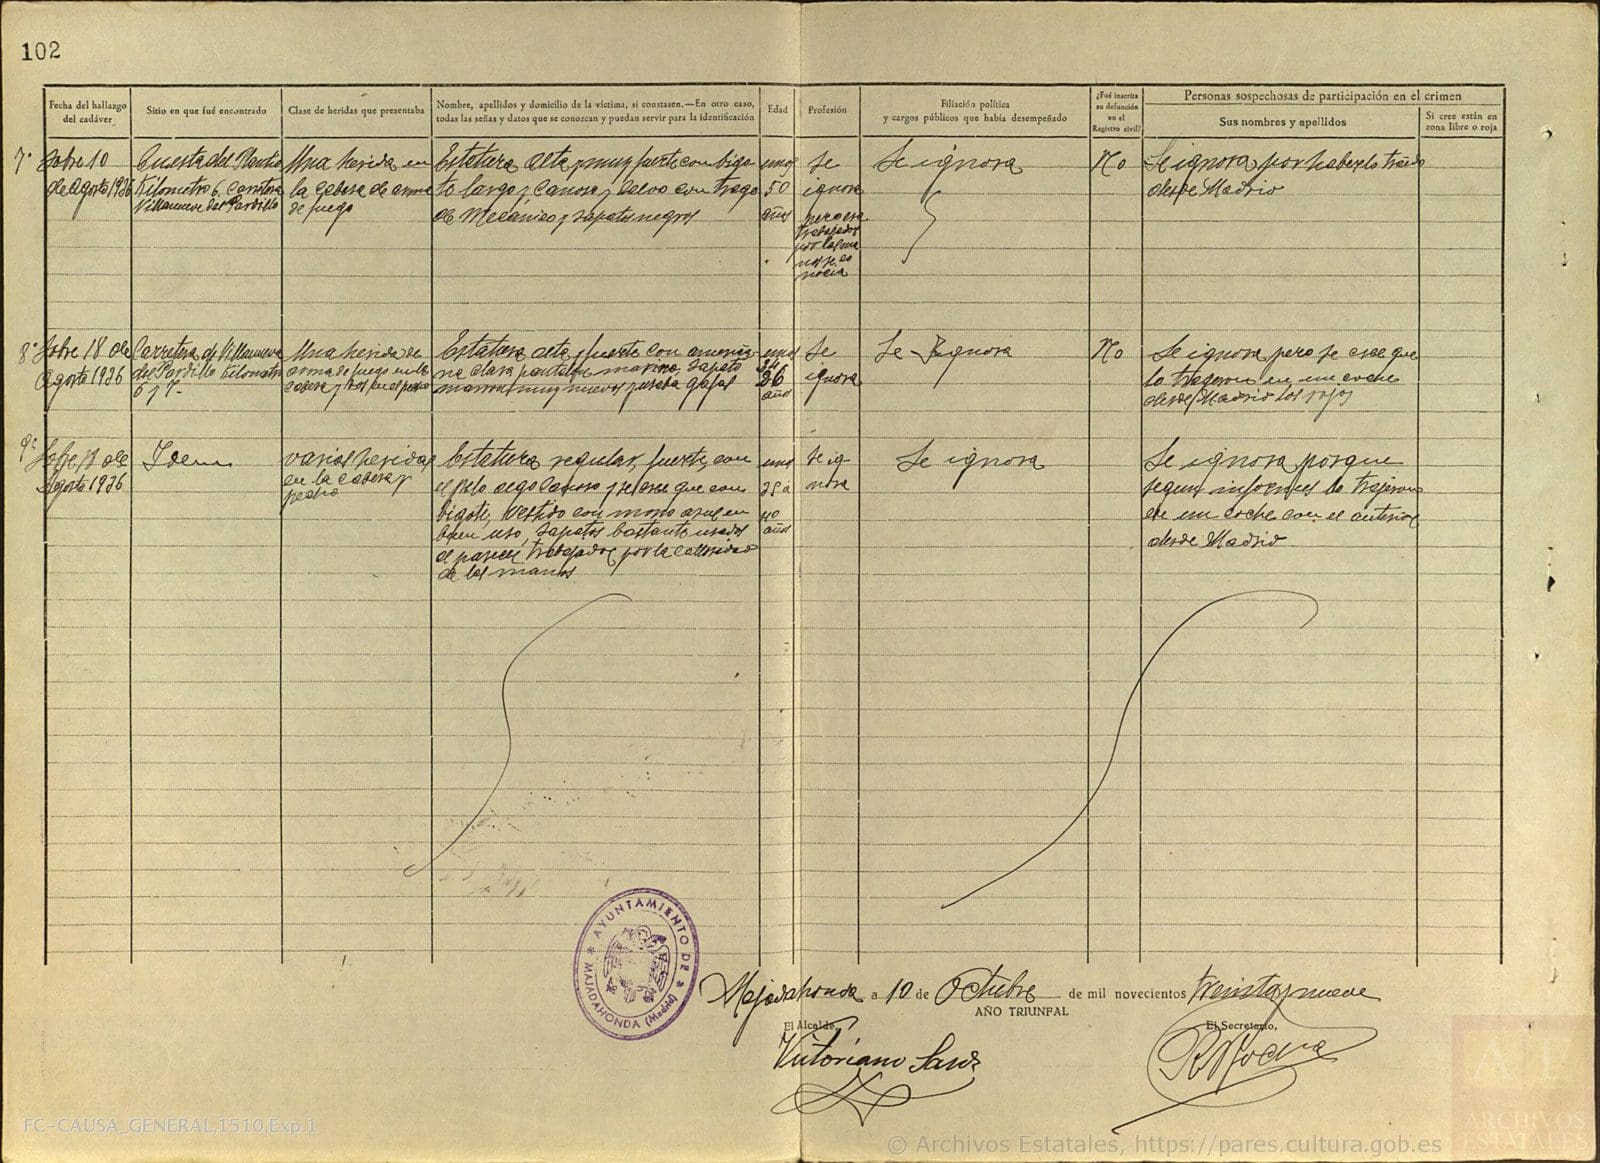 102
Fecha del hallazgo
del cadáver
Sitio en que fué encontrado
Clase de heridas que presentaba
Nombre, apellidos y domicilio de la víctima, si constasen.—En otro caso,
todas las señas y datos que se conozcan y puedan servir para la identificación
Edad
Profesión
Filiación política
y cargos públicos que había desempeñado
¿Fué inscrita
su defunción
en el
Registro civil?
Personas sospechosas de participación en el crimen
Sus nombres y apellidos
Si cree están en
zona libre o roja
7º
Sobre 10
de Agosto 1936
Cuesta del Plantio
Kilometro 6, Carretera
Villanueva del Pardillo
Una herida en
la cabeza de arma
de fuego
Estatura alta y muy fuerte con bigo
te largo y canoso y calvo con trage
de Mecanico y zapatos negros
unos
50
años
Se
ignora
pero era
trabajador
por las ma
nos se co
nocia
Se ignora
No
Se ignora por haberlo traido
desde Madrid
8º
Sobre 18 de
Agosto 1936
Carretera de Villanueva
del Pardillo Kilometro
6 y 7-
Una herida de
arma de fuego en la
cabeza y dos en el pecho
Estatura alta y fuerte con america
na clara pantalon marino, zapato
marron muy nuevos y usaba gafas
unos
24
26
años
Se
ignora
Se ignora
No
Se ignora pero se cree que
lo trageron en un coche
desde Madrid los rojos
9º
Sobre 18 de
Agosto 1936
Idem
varias heridas
en la cabeza y
pecho
Estatura regular, fuerte, con
el pelo algo canoso y se cree que con
bigote, vestido con mono azul en
buen uso, zapatos bastante usados
al parecer trabajador por la callosidad
de las manos
unos
35 a
40
años
Se ig
nora
Se ignora
Se ignora porque
segun informes lo trajeron
en un coche con el anterior
desde Madrid
AYUNTAMIENTO DE
MAJADAHONDA (Madrid)
Majadahonda a 10 de Octubre de mil novecientos treinta y nueve
AÑO TRIUNFAL
El Alcalde,
El Secretario,
Victoriano Sanz
FC-CAUSA_GENERAL,1510,Exp.1
© Archivos Estatales, https://pares.cultura.gob.es
AE
ARCHIVOS
ESTATALES